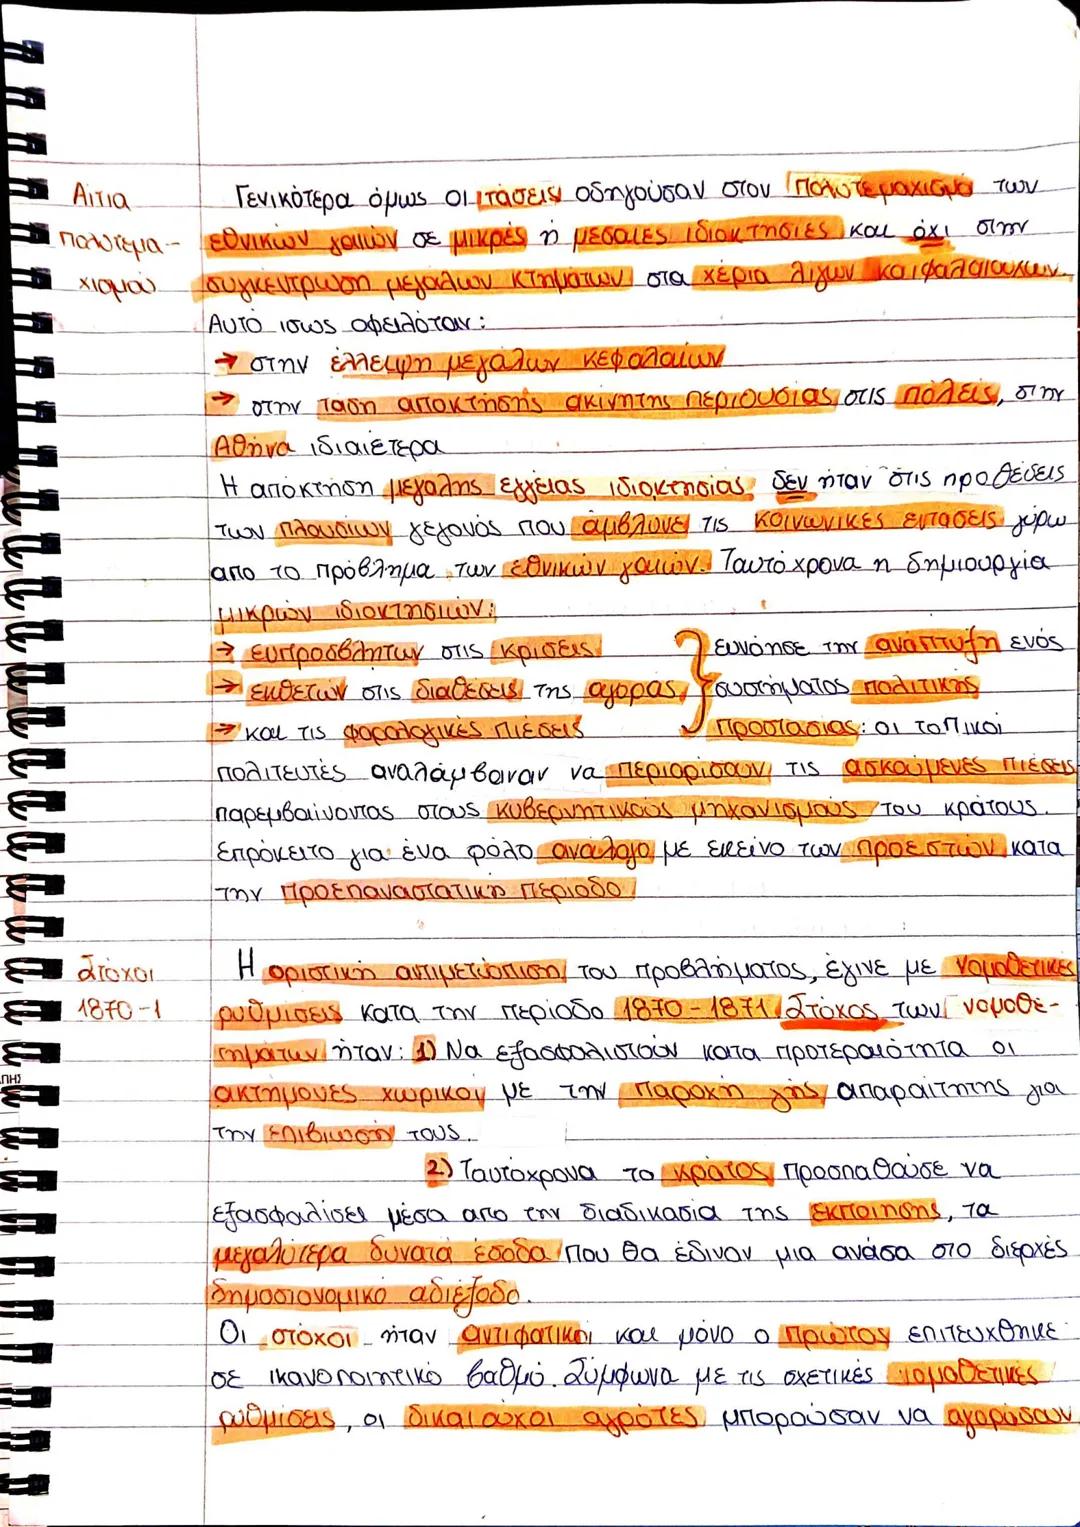 Αίτια
πολυτεμα-
χισμού
Γενικότερα όμως οι τάσεις οδηγούσαν στον πολυτεμαχισμό των
εθνικών γαιών σε μικρές ή μεσαίες ιδιοκτησίες και όχι στην
συγκέντρωση μεγάλων κτημάτων στα χέρια λίγων κεφαλαιούχων.
Αυτό ίσως οφειλόταν:
→ στην έλλειψη μεγάλων κεφαλαίων
→ στην τάση απόκτησης ακίνητης περιουσίας στις πόλεις, στην
Αθήνα ιδιαίτερα
Η απόκτηση μεγάλης έγγειας ιδιοκτησίας δεν ήταν στις προθέσεις
των πλουσίων γεγονός που άμβλυνε τις κοινωνικές εντάσεις γύρω
απο το πρόβλημα των εθνικών γαιών. Ταυτόχρονα η δημιουργία
μικρών ιδιοκτησιών:
→ ευπρόσβλητων στις κρίσεις
→ εκθετών στις διαθέσεις της αγοράς
→ και τις φορολογικές πιέσεις
} ευνόησε την ανάπτυξη ενός
συστήματος πολιτικής
προστασίας: οι τοπικοί
πολιτευτές αναλάμβαναν να περιορίσουν τις ασκούμενες πιέσεις
παρεμβαίνοντας στους κυβερνητικούς μηχανισμούς του κράτους.
Επρόκειτο για ένα ρόλο ανάλογο με εκείνο των προεστών κατα
την προεπαναστατική περίοδο
Στόχοι
1870-1
Η οριστική αντιμετώπιση του προβλήματος, έγινε με νομοθετικές
ρυθμίσεις κατα την περίοδο 1870-1871. Στόχος των νομοθε-
τημάτων ήταν: 1) Να εξασφαλιστούν κατα προτεραιότητα οι
ακτήμονες χωρικοί με την παροχή γης απαραίτητης για
την επιβίωσή τους.
2) Ταυτόχρονα το κράτος προσπαθούσε να
εξασφαλίσει μέσα απο την διαδικασία της εκποίησης, τα
μεγαλύτερα δυνατά έσοδα που θα έδιναν μια ανάσα στο διαρκές
δημοσιονομικό αδιέξοδο.
Οι στόχοι ήταν αντιφατικοί και μόνο ο πρώτος επιτεύχθηκε
σε ικανοποιητικό βαθμό. Σύμφωνα με τις σχετικές νομοθετικές
ρυθμίσεις, οι δικαιούχοι αγρότες μπορούσαν να αγοράσουν